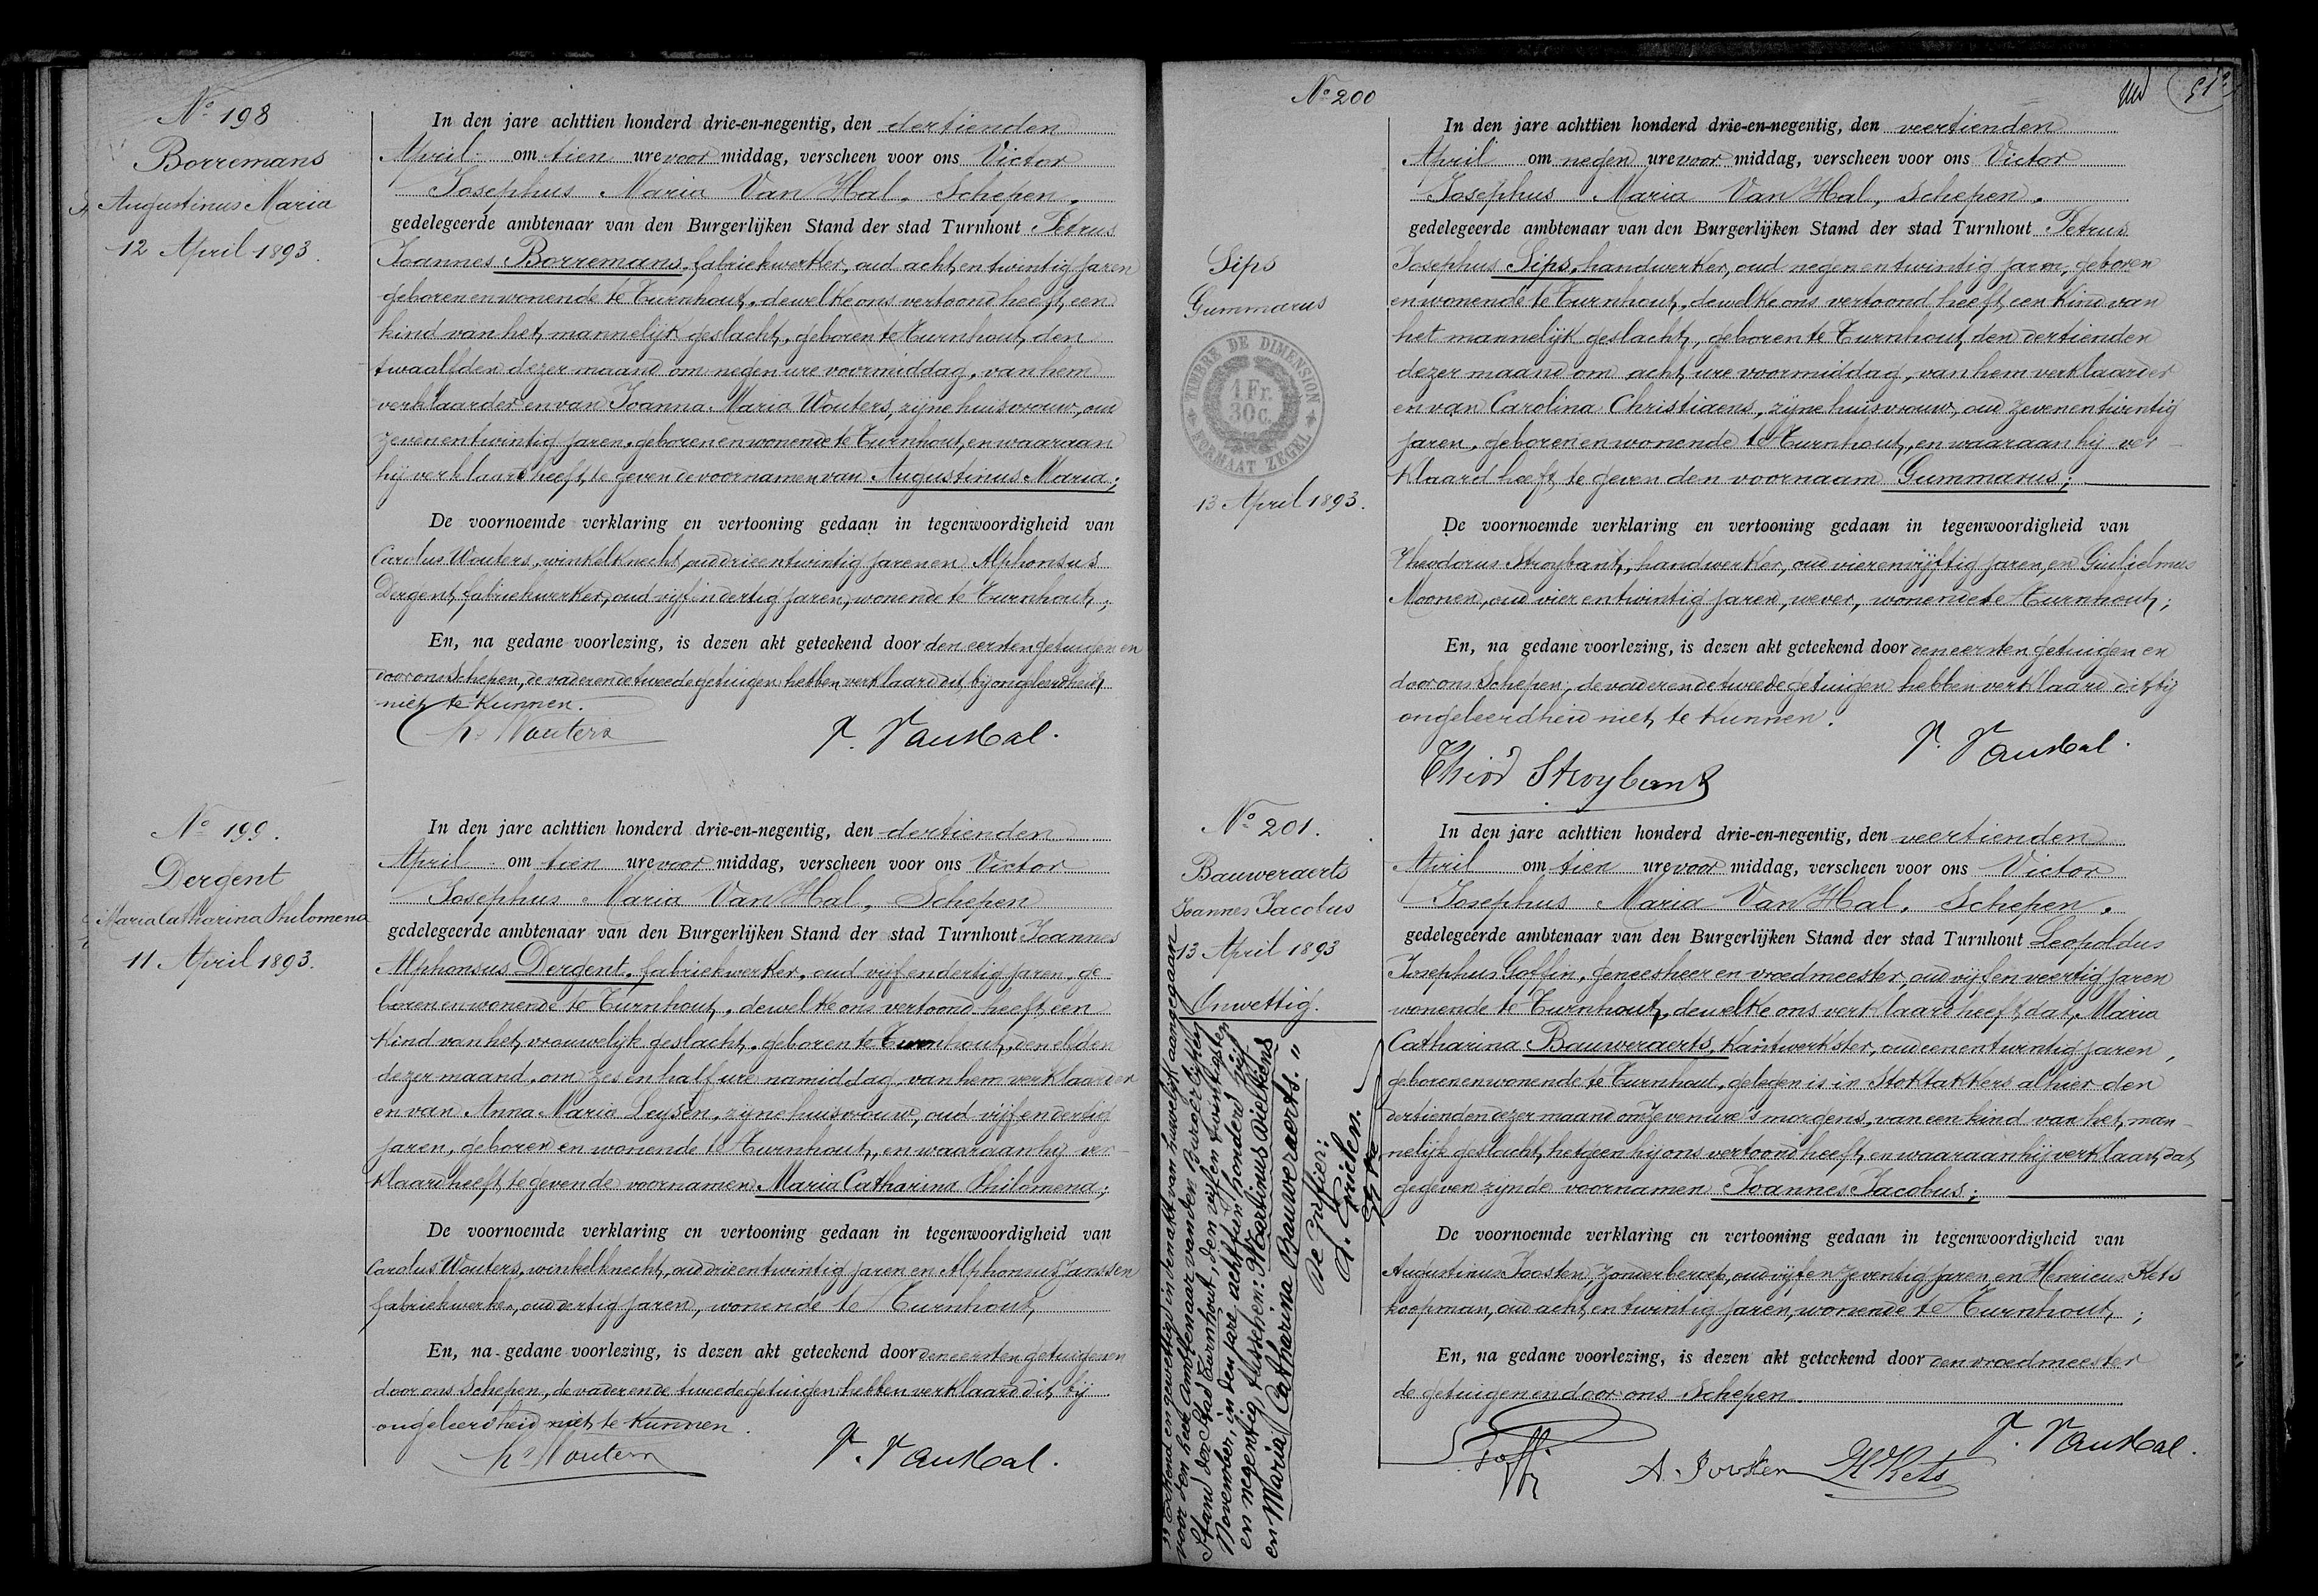 No 198
Borremans
Augustinus Maria
12 April 1893.
In den jare achttien honderd drie-en-negentig, den dertienden
April om tien ure voor middag, verscheen voor ons Victor
Josephus Maria Van Hal, Schepen,
gedelegeerde ambtenaar van den Burgerlijken Stand der stad Turnhout Petrus
Joannes Borremans, fabriekwerker, oud acht en twintig jaren
geboren en wonende te Turnhout, dewelke ons vertoond heeft een
kind van het mannelijk geslacht, geboren te Turnhout, den
twaalfden dezer maand om negen ure voormiddag, van hem
verklaarder en van Joanna Maria Wouters, zijne huisvrouw, oud
zeven en twintig jaren, geboren en wonende te Turnhout, en waaraan
hij verklaard heeft te geven de voornamen van Augustinus Maria;
De voornoemde verklaring en vertooning gedaan in tegenwoordigheid van
Carolus Wouters, winkelknecht, oud drie en twintig jaren en Alphonsus
Dergent, fabriekwerker, oud vijf en dertig jaren, wonende te Turnhout;
En, na gedane voorlezing, is dezen akt geteekend door den eersten getuigen en
door ons Schepen, de vader en de tweede getuigen hebben verklaard dit, bij ongeleerdheid,
niet te kunnen.
Wouters
V. Van Hal.
No 199.
Dergent
Maria Catharina Philomena
11 April 1893.
In den jare achttien honderd drie-en-negentig, den dertienden
April om tien ure voor middag, verscheen voor ons Victor
Josephus Maria Van Hal, Schepen
gedelegeerde ambtenaar van den Burgerlijken Stand der stad Turnhout Joannes
Alphonsus Dergent, fabriekwerker, oud vijf en dertig jaren, ge-
boren en wonende te Turnhout, dewelke ons vertoond heeft een
kind van het vrouwelijk geslacht, geboren te Turnhout, den elfden
dezer maand, om zes en half ure namiddag, van hem verklaarder
en van Anna Maria Leysen, zijne huisvrouw, oud vijf en dertig
jaren, geboren en wonende te Turnhout, en waaraan hij ver-
klaard heeft te geven de voornamen Maria Catharina Philomena;
De voornoemde verklaring en vertooning gedaan in tegenwoordigheid van
Carolus Wouters, winkelknecht, oud drie en twintig jaren en Alphonsus Janssen
fabriekwerker, oud dertig jaren, wonende te Turnhout,
En, na gedane voorlezing, is dezen akt geteekend door den eersten getuigen en
door ons Schepen, de vader en de tweede getuigen hebben verklaard dit, bij
ongeleerdheid niet te kunnen.
Wouters
V. Van Hal.
No 200
51
Sips
Gummarus
TIMBRE DE DIMENSION
1 Fr.
30 c.
FORMAAT ZEGEL
13 April 1893.
In den jare achttien honderd drie-en-negentig, den veertienden
April om negen ure voor middag, verscheen voor ons Victor
Josephus Maria Van Hal, Schepen,
gedelegeerde ambtenaar van den Burgerlijken Stand der stad Turnhout Petrus
Josephus Sips, handwerker, oud negen en twintig jaren, geboren
en wonende te Turnhout, dewelke ons vertoond heeft een kind van
het mannelijk geslacht, geboren te Turnhout, den dertienden
dezer maand om acht ure voormiddag, van hem verklaarder
en van Carolina Christiaens, zijne huisvrouw, oud zeven en twintig
jaren, geboren en wonende te Turnhout, en waaraan hij ver-
klaard heeft te geven den voornaam Gummarus;
De voornoemde verklaring en vertooning gedaan in tegenwoordigheid van
Theodorus Stroybant, handwerker, oud vier en vijftig jaren, en Guilielmus
Moonen, oud vier en twintig jaren, wever, wonende te Turnhout;
En, na gedane voorlezing, is dezen akt geteekend door den eersten getuigen en
door ons Schepen; de vader en de tweede getuigen hebben verklaard dit, bij
ongeleerdheid niet te kunnen.
V. Van Hal.
Theod Stroybant
No 201.
Bauweraerts
Joannes Jacobus
13 April 1893
Onwettig.
In den jare achttien honderd drie-en-negentig, den veertienden
April om tien ure voor middag, verscheen voor ons Victor
Josephus Maria Van Hal, Schepen,
gedelegeerde ambtenaar van den Burgerlijken Stand der stad Turnhout Leopoldus
Josephus Goffin, geneesheer en vroedmeester, oud vijf en veertig jaren
wonende te Turnhout, dewelke ons verklaard heeft, dat, Maria
Catharina Bauweraerts, kantwerkster, oud een en twintig jaren,
geboren en wonende te Turnhout, gelegen is in Stoktakkers alhier den
dertienden dezer maand om zeven ure 's morgens, van een kind van het man-
nelijk geslacht, hetgeen hij ons vertoond heeft, en waaraan hij verklaart, dat
gegeven zijn de voornamen Joannes Jacobus;
De voornoemde verklaring en vertooning gedaan in tegenwoordigheid van
Augustinus Joosten, zonder beroep, oud vijf en zeventig jaren, en Henricus Kets
koopman, oud acht en twintig jaren, wonende te Turnhout,;
En, na gedane voorlezing, is dezen akt geteekend door den vroedmeester
de getuigen en door ons Schepen.
Goffin
A. Joosten
H Kets
V. Van Hal.
"Erkend en gewettigd in den akt van huwelijk aangegaan
voor den heer Ambtenaar van den Burgerlijken
Stand der Stad Turnhout, den vijf en twintigsten
November, in den jare achttien honderd vijf
en negentig tusschen: Martinus Dieltjens
en Maria Catharina Bauweraerts."
De Griffier:
A. Gielen.